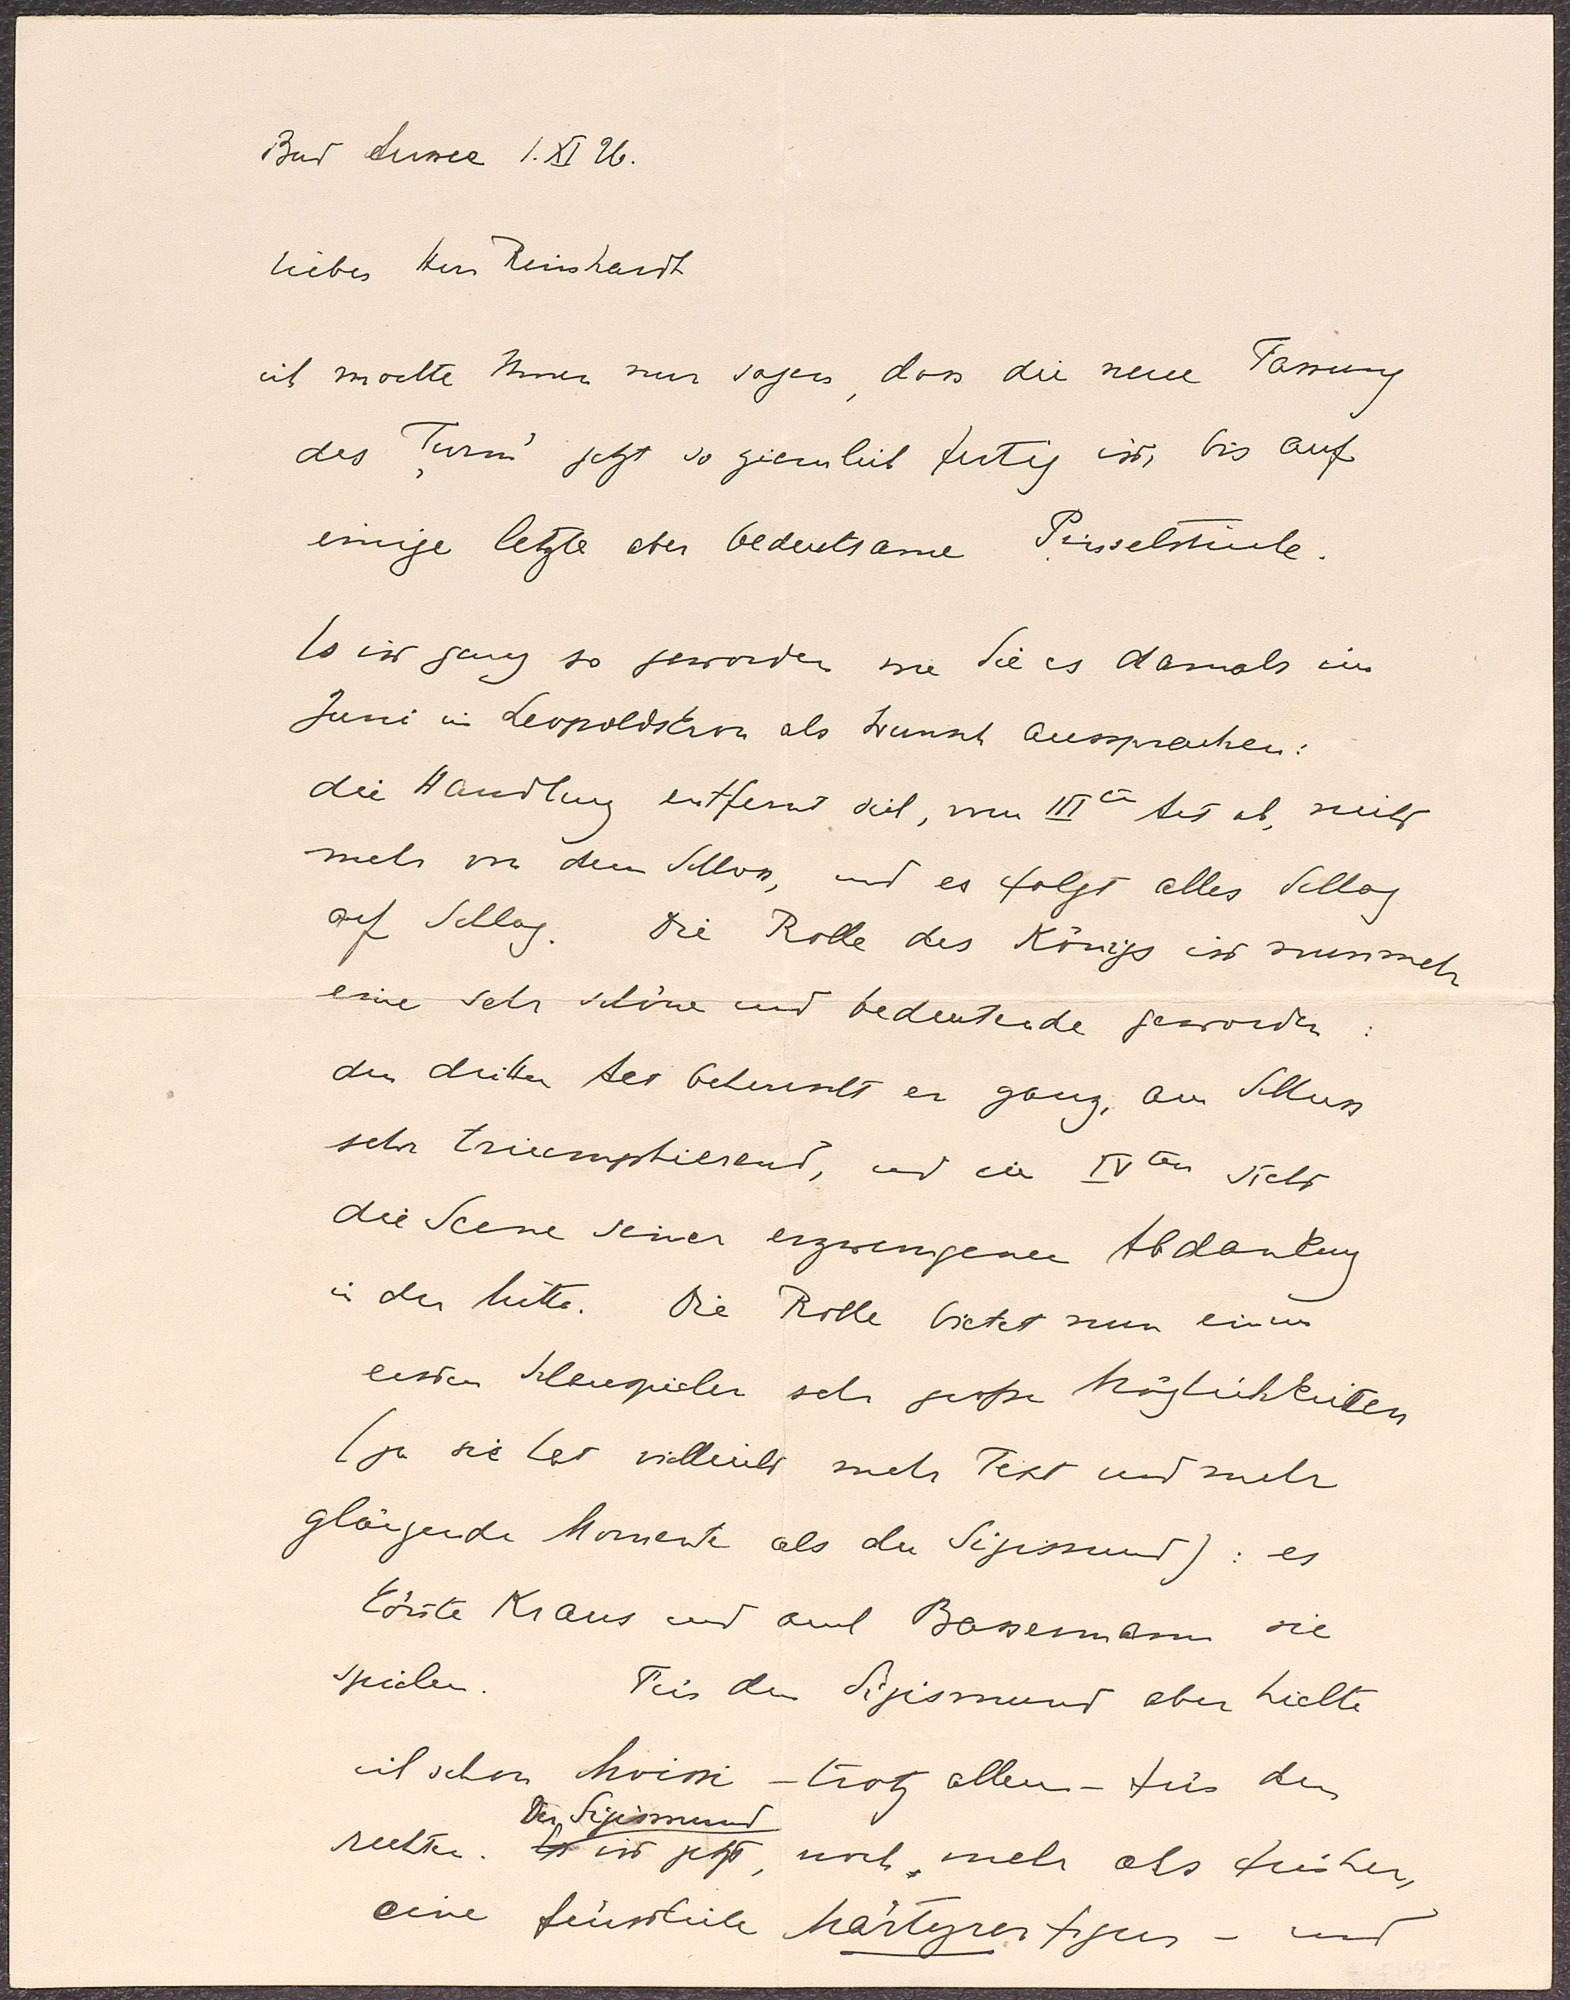 Bad Aussee 1. XI 26.
lieber Herr Reinhardt
ich möchte Ihnen nur sagen, dass die neue Fassung
des ‚Turm' jetzt so ziemlich fertig ist, bis auf
einige letzte aber bedeutsame Pinselstriche.
Es ist ganz so geworden wie Sie es damals im
Juni in Leopoldskron als Wunsch aussprachen:
die Handlung entfernt sich, vom IIIten Act ab, nicht
mehr von dem Schloss, und es folgt alles Schlag
auf Schlag. Die Rolle des Königs ist nunmehr
eine sehr schöne und bedeutende geworden:
den dritten Act beherrscht er ganz, am Schluss
sehr triumphierend, und im IVten steht
die Scene seiner erzwungenen Abdankung
in der Mitte. Die Rolle bietet nun einem
ersten Schauspieler sehr große Möglichkeiten
(ja sie hat vielleicht mehr Text und mehr
glänzende Momente als der Sigismund): es
könnte Kraus und auch Bassermann sie
spielen. Für den Sigismund aber hielte
ich schon Moissi – trotz allem – für den
Der Sigismund
rechten. Es ist jetzt, noch mehr als früher,
eine fürstliche Märtyrerfigur – und